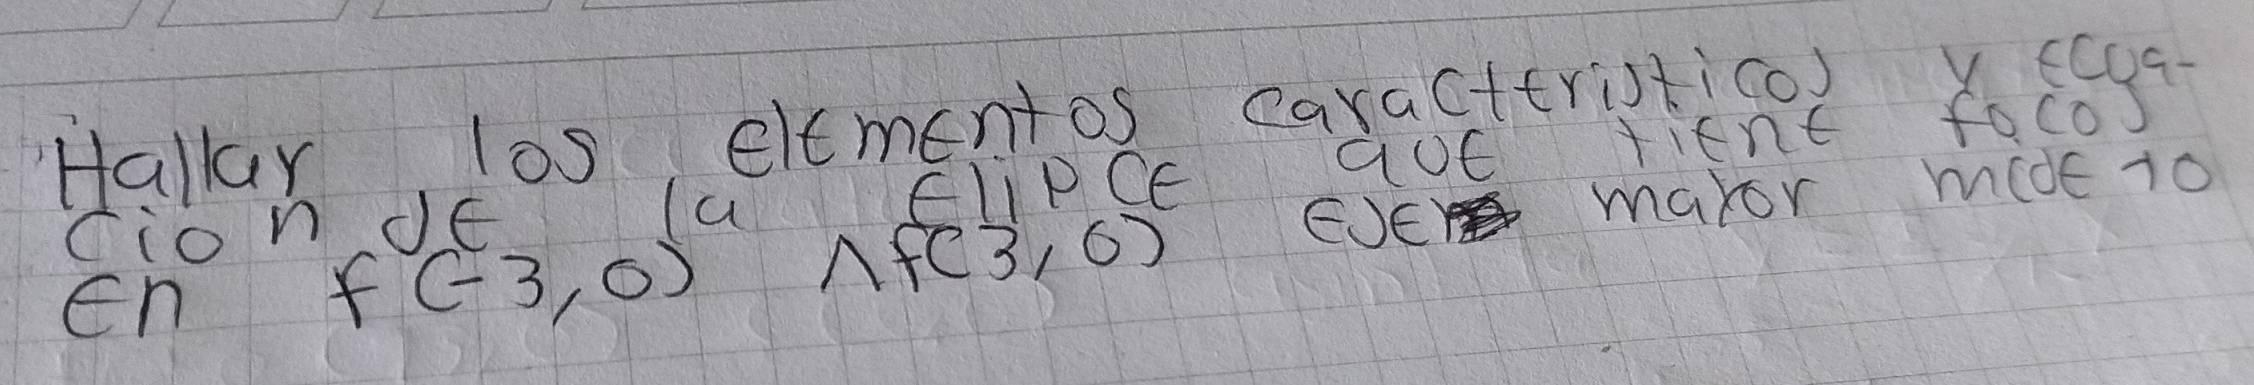 Hallar los elementos caracteristicos y ecua-
cion de la elipce que tiene focos
en f(-3,0) ∧ f(3,0) eje mayor mide 10